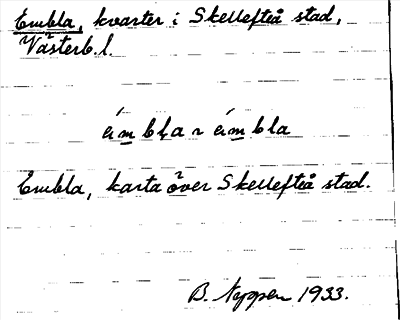 Embla, kvarter i Skellefteå stad,
Västerb.l.
émbḷa ~ émbla
Embla, karta över Skellefteå stad.
B. 1933.